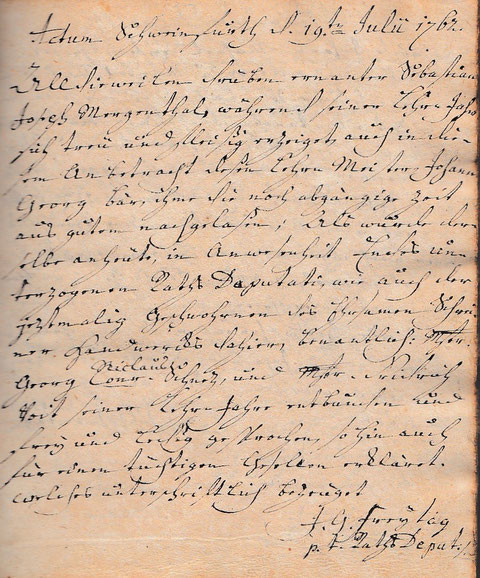 Actum Schweinfurth d. 19.ten Julii 1762.
Alldieweilen droben ernanter Sebastian
Joseph Mergenthal, während seiner Lehr-Jahre
sich treu und fleisig erzeiget, auch in die-
sem Anbetracht dessen Lehr-Meister Johann
Georg Bär, ihme die noch abgängige Zeit
aus gutem nachgelasen; Als wurde der-
selbe anheute, in Anwesenheit Endes un-
terzogenen Raths Deputati, wie auch der
jeztmalig Geschwohrnen des Ehrsamen Schrei-
ner Handwercks dahier, benantlich: Mstr.
Georg Niclaus Schnetz, und Mstr. Friedrich
Voit seiner Lehr-Jahre entbunden und
frey und ledig gesprochen, so hin auch
für einen tüchtigen Gesellen erkläret.
welches unterschriftlich bezeuget
J. G. Freytag
p. t. Raths Deputatus